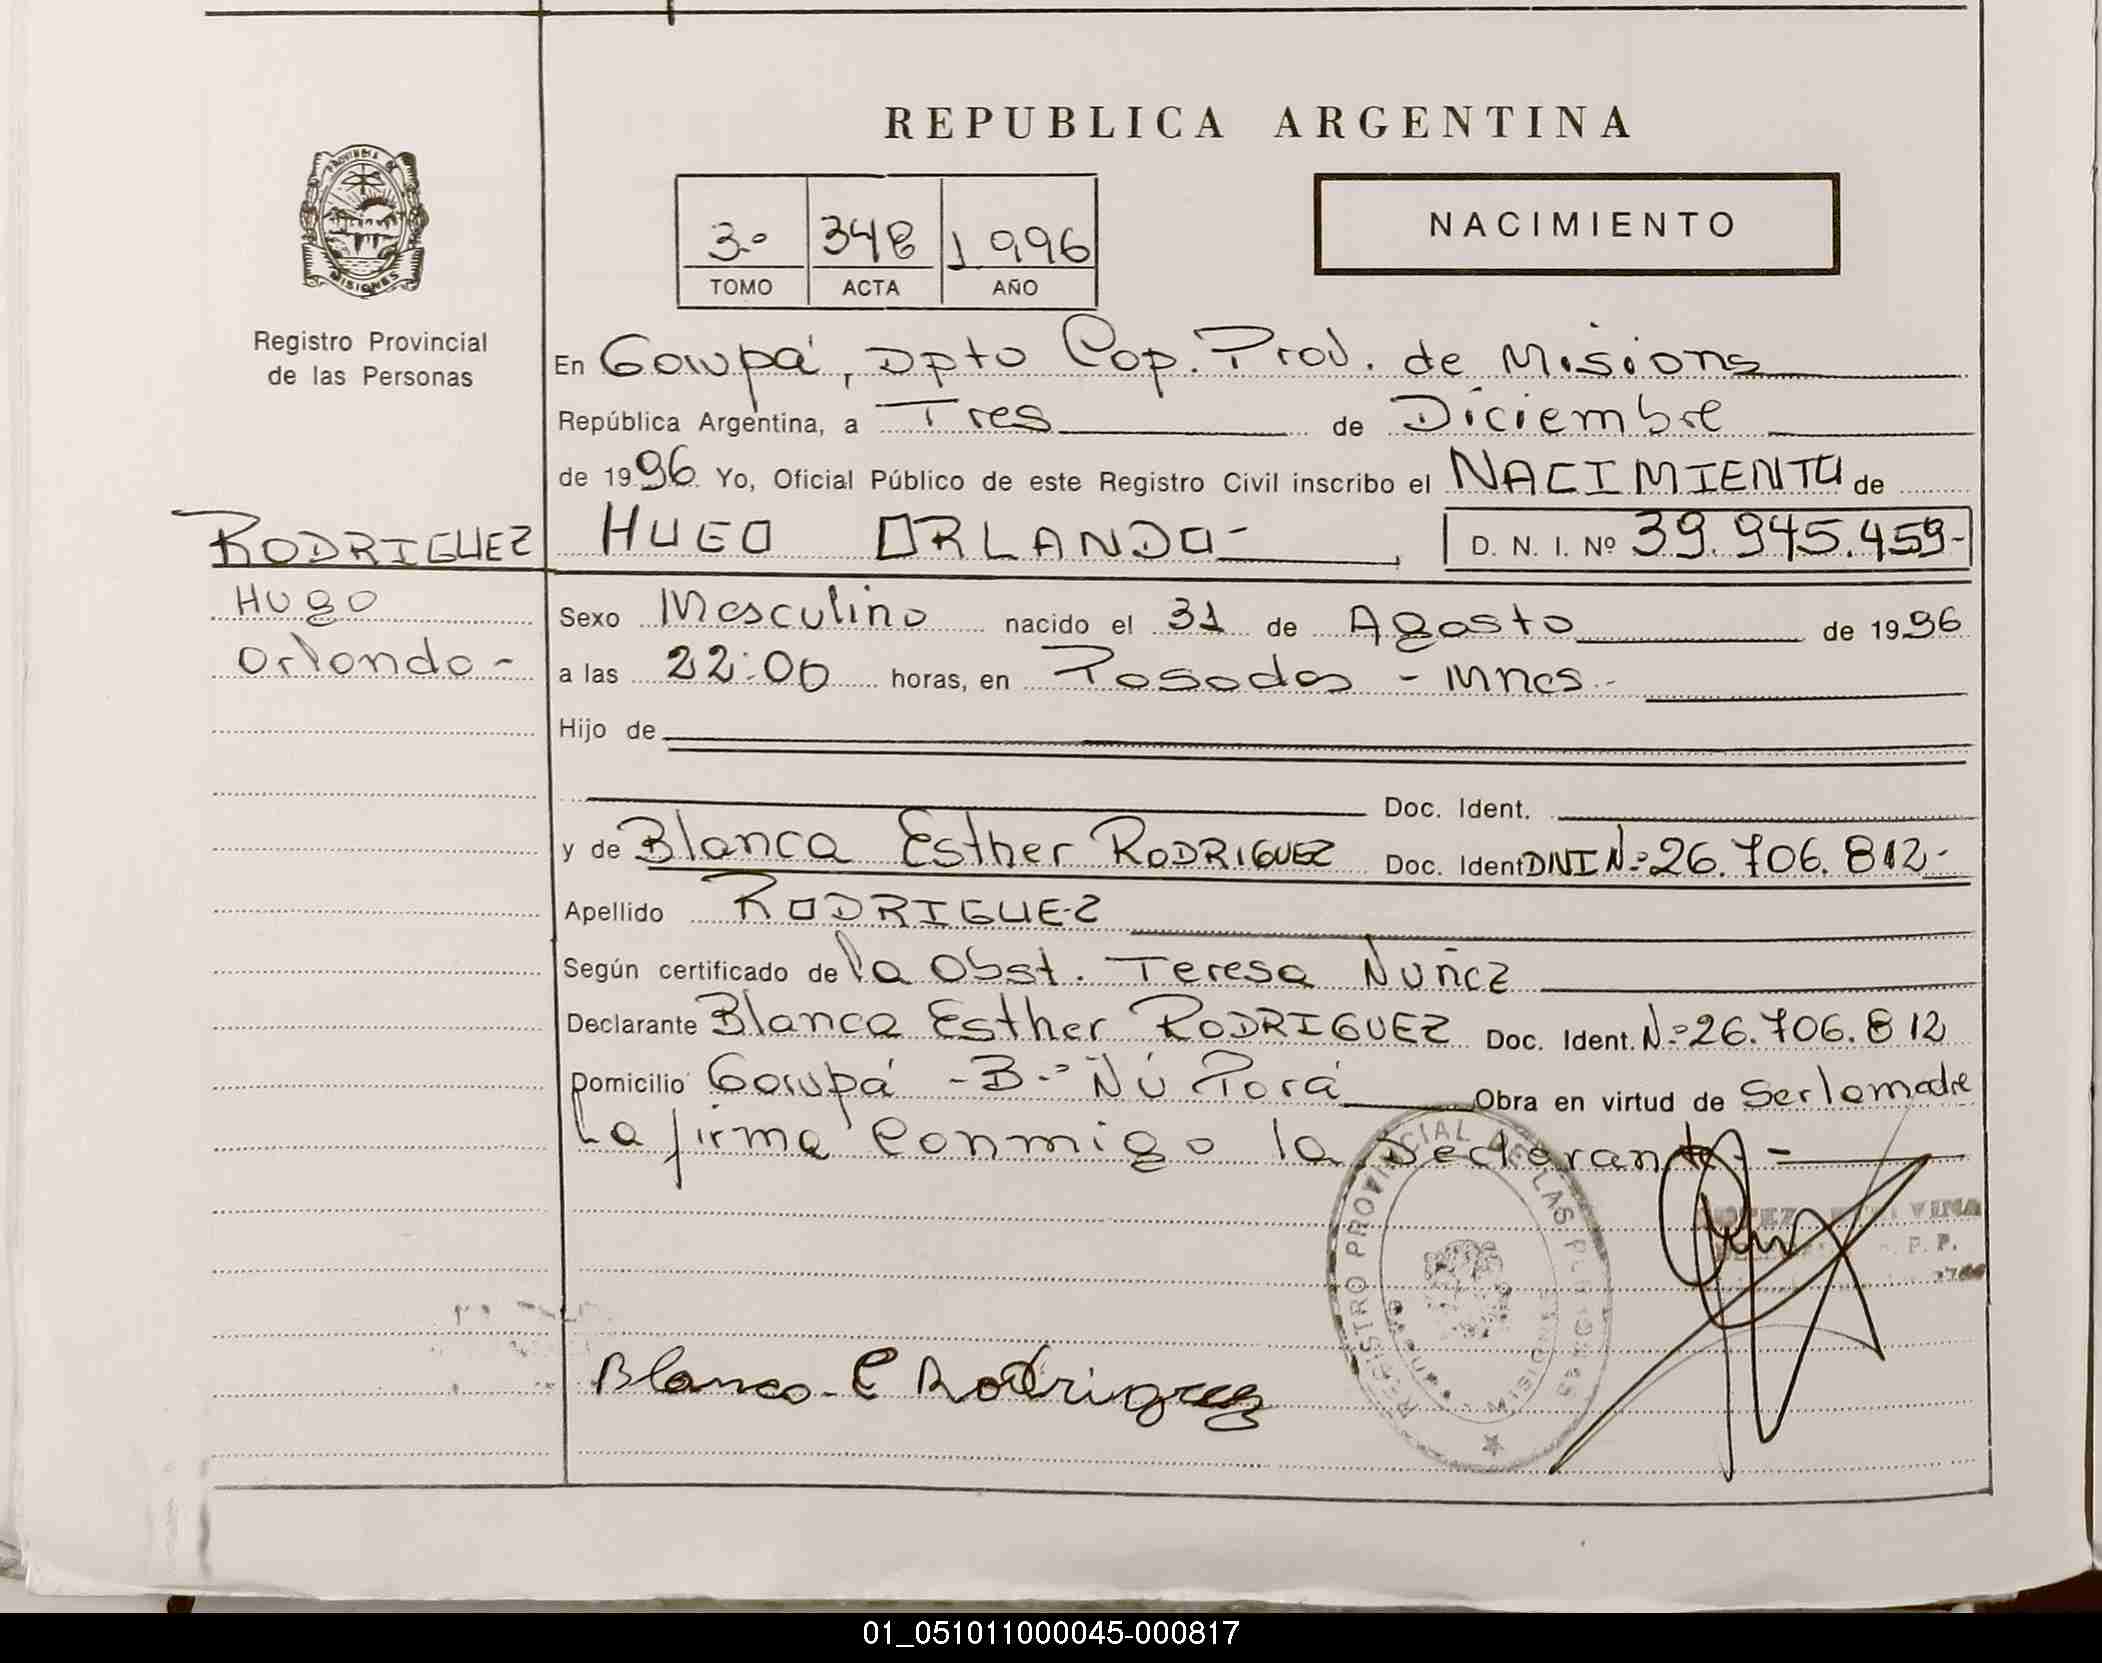 REPUBLICA ARGENTINA
NACIMIENTO
3º 348 1996
TOMO ACTA AÑO
PROVINCIA DE
MISIONES
Registro Provincial
de las Personas
En Garupá, Dpto Cap. Prov. de Misions
República Argentina, a Tres de Diciembre
de 1996 Yo, Oficial Público de este Registro Civil inscribo el NACIMIENTO de
RODRIGUEZ HUGO ORLANDO- D. N. I. Nº 39.945.459-
Hugo
Orlando-
Sexo Masculino nacido el 31 de Agosto de 1996
a las 22:00 horas, en Posadas - Mnes.-
Hijo de
Doc. Ident.
y de Blanca Esther RODRIGUEZ Doc. Ident DNI Nº 26.706.812-
Apellido RODRIGUEZ
Según certificado de la Obst. Teresa Nuñez
Declarante Blanca Esther RODRIGUEZ Doc. Ident. Nº 26.706.812
Domicilio Garupá - Bº Ñú Porá Obra en virtud de Ser la madre
La firma conmigo la Declarante -
REGISTRO PROVINCIAL DE LAS PERSONAS
Blanca E Rodriguez
01_051011000045-000817